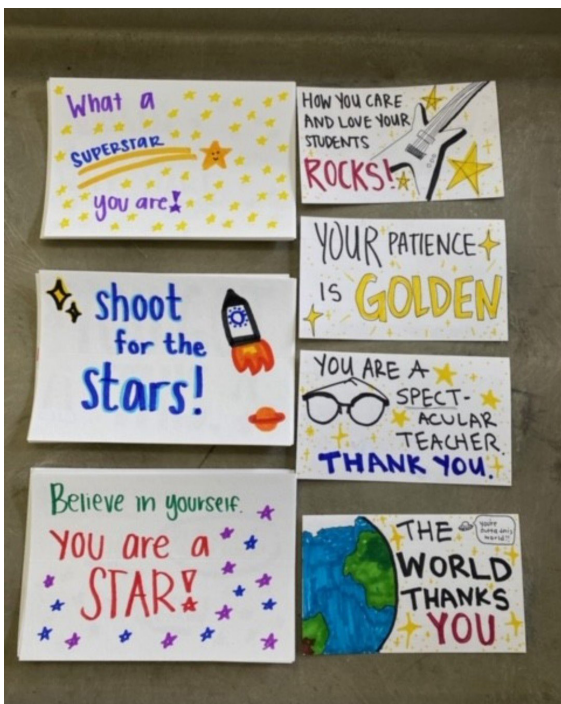 What a
SUPERSTAR
you are!
shoot
for the
stars!
Believe in yourself.
you are a
STAR!
HOW YOU CARE
AND LOVE YOUR
STUDENTS
ROCKS!
YOUR PATIENCE
IS GOLDEN
YOU ARE A
SPECT-
ACULAR
TEACHER.
THANK YOU.
THE
WORLD
THANKS
YOU